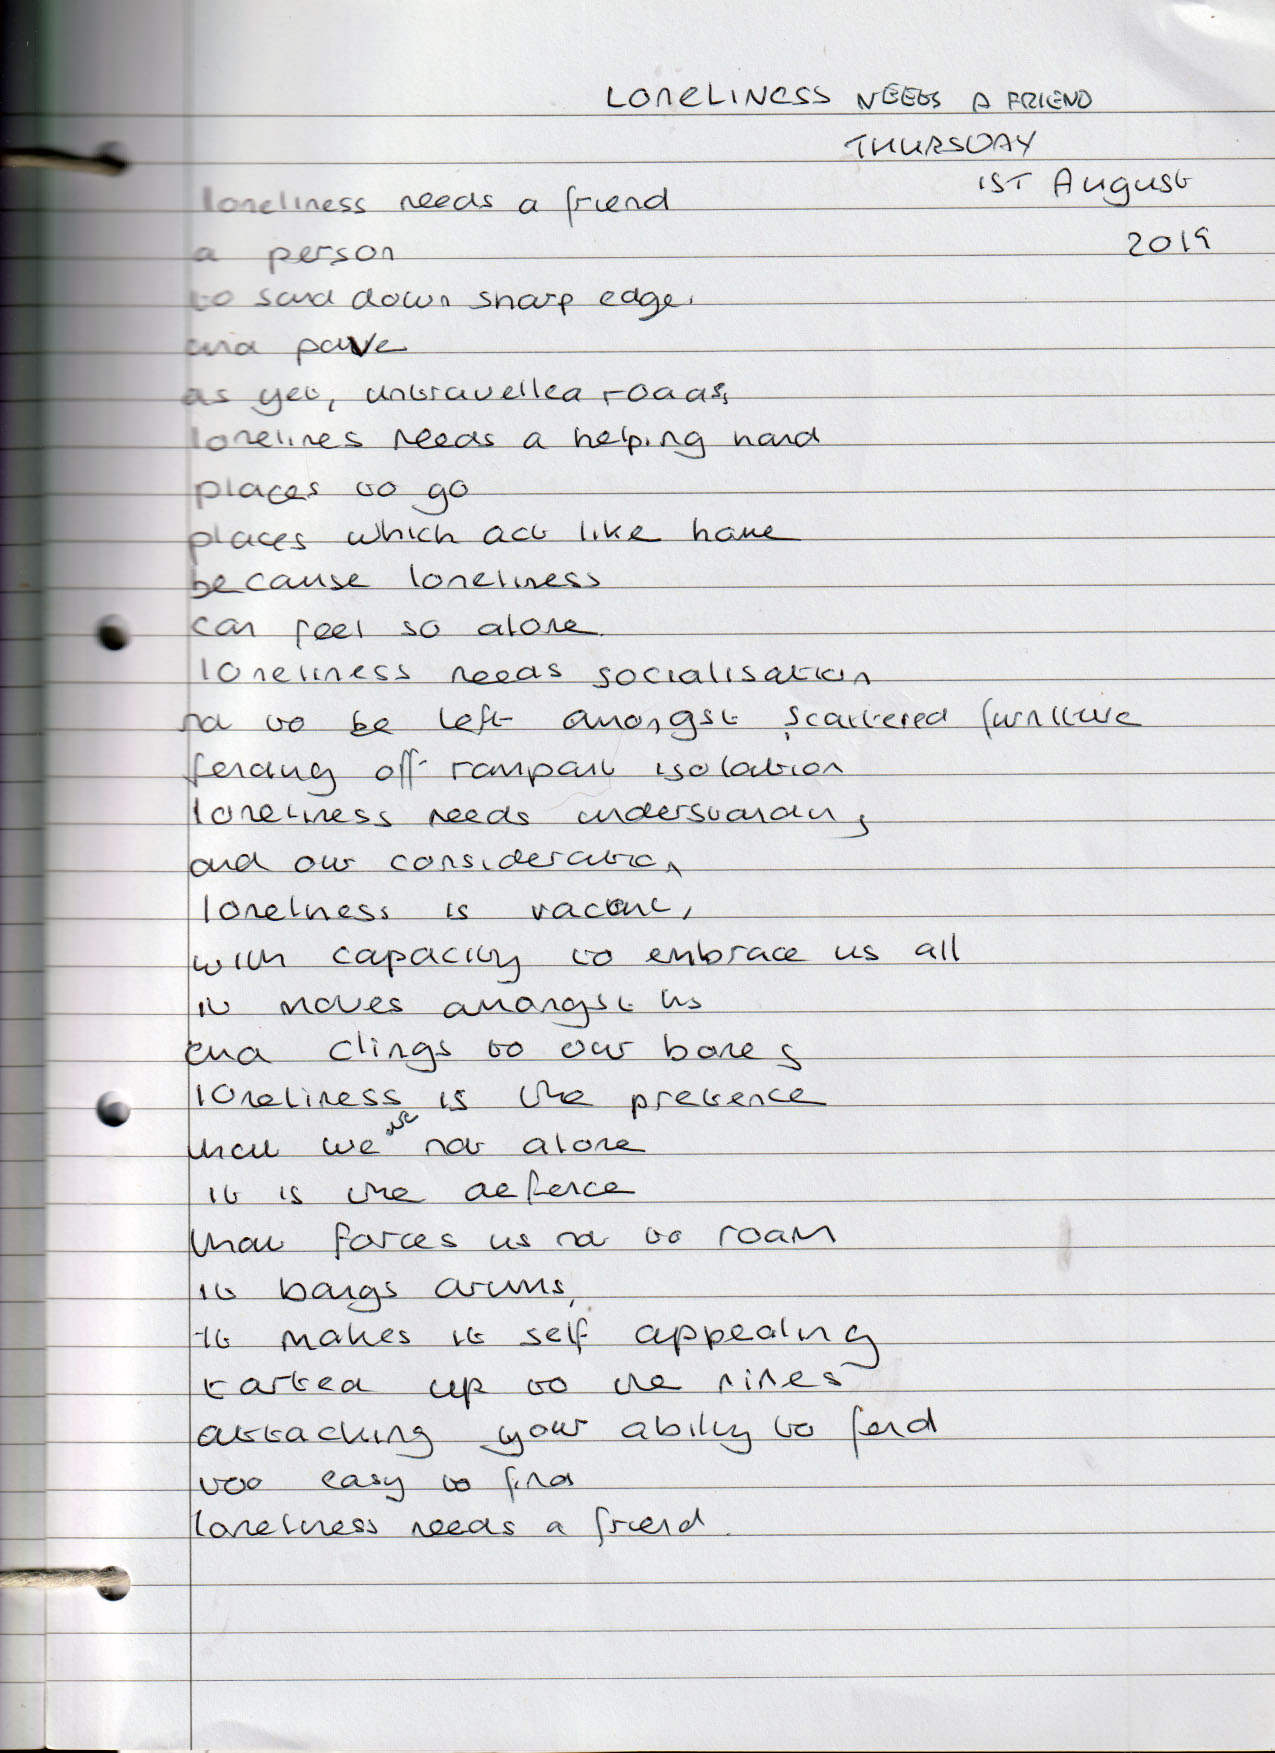 LONELINESS NEEDS A FRIEND
THURSDAY
1ST August
2019
loneliness needs a friend
a person
to sand down sharp edge.
and pave
as yet, untravelled roads,
lonelines needs a helping hand
places to go
places which act like home
because loneliness
can feel so alone.
loneliness needs socialisation
not to be left amongst scattered furniture
fending off rampant isolation
loneliness needs understanding
and our consideration
loneliness is vacant,
with capacity to embrace us all
it moves amongst us
and clings to our bones
loneliness is the pretence
that we are not alone
it is the defence
that forces us not to roam
it bangs drums,
it makes it self appealing
tarted up to the nines
attacking your ability to fend
too easy to find
loneliness needs a friend.